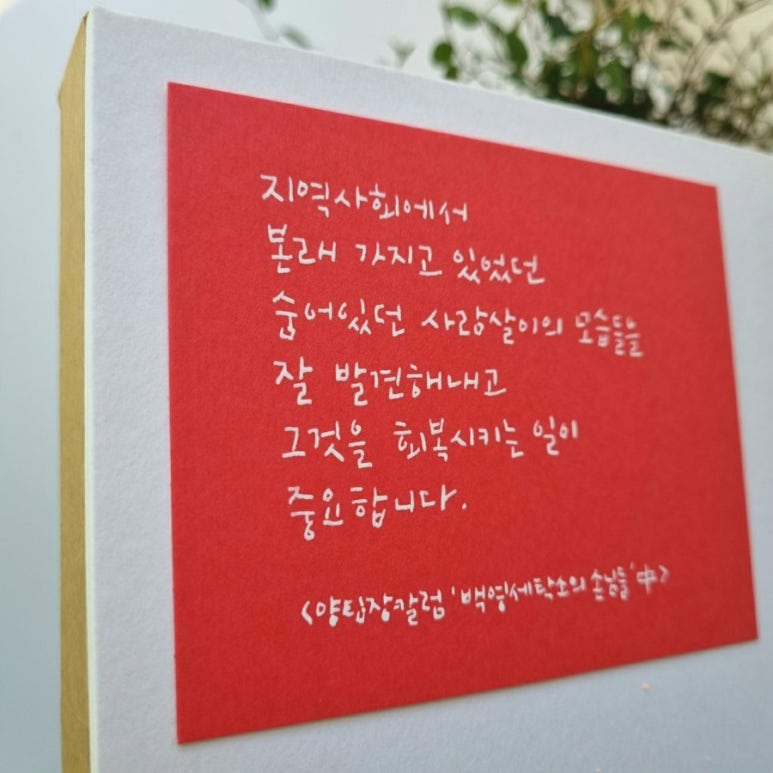 지역사회에서
본래 가지고 있었던
숨어있던 사람살이의 모습들을
잘 발견해내고
그것을 회복시키는 일이
중요합니다.
<양팀장칼럼 '백영세탁소의 손님들' 中>